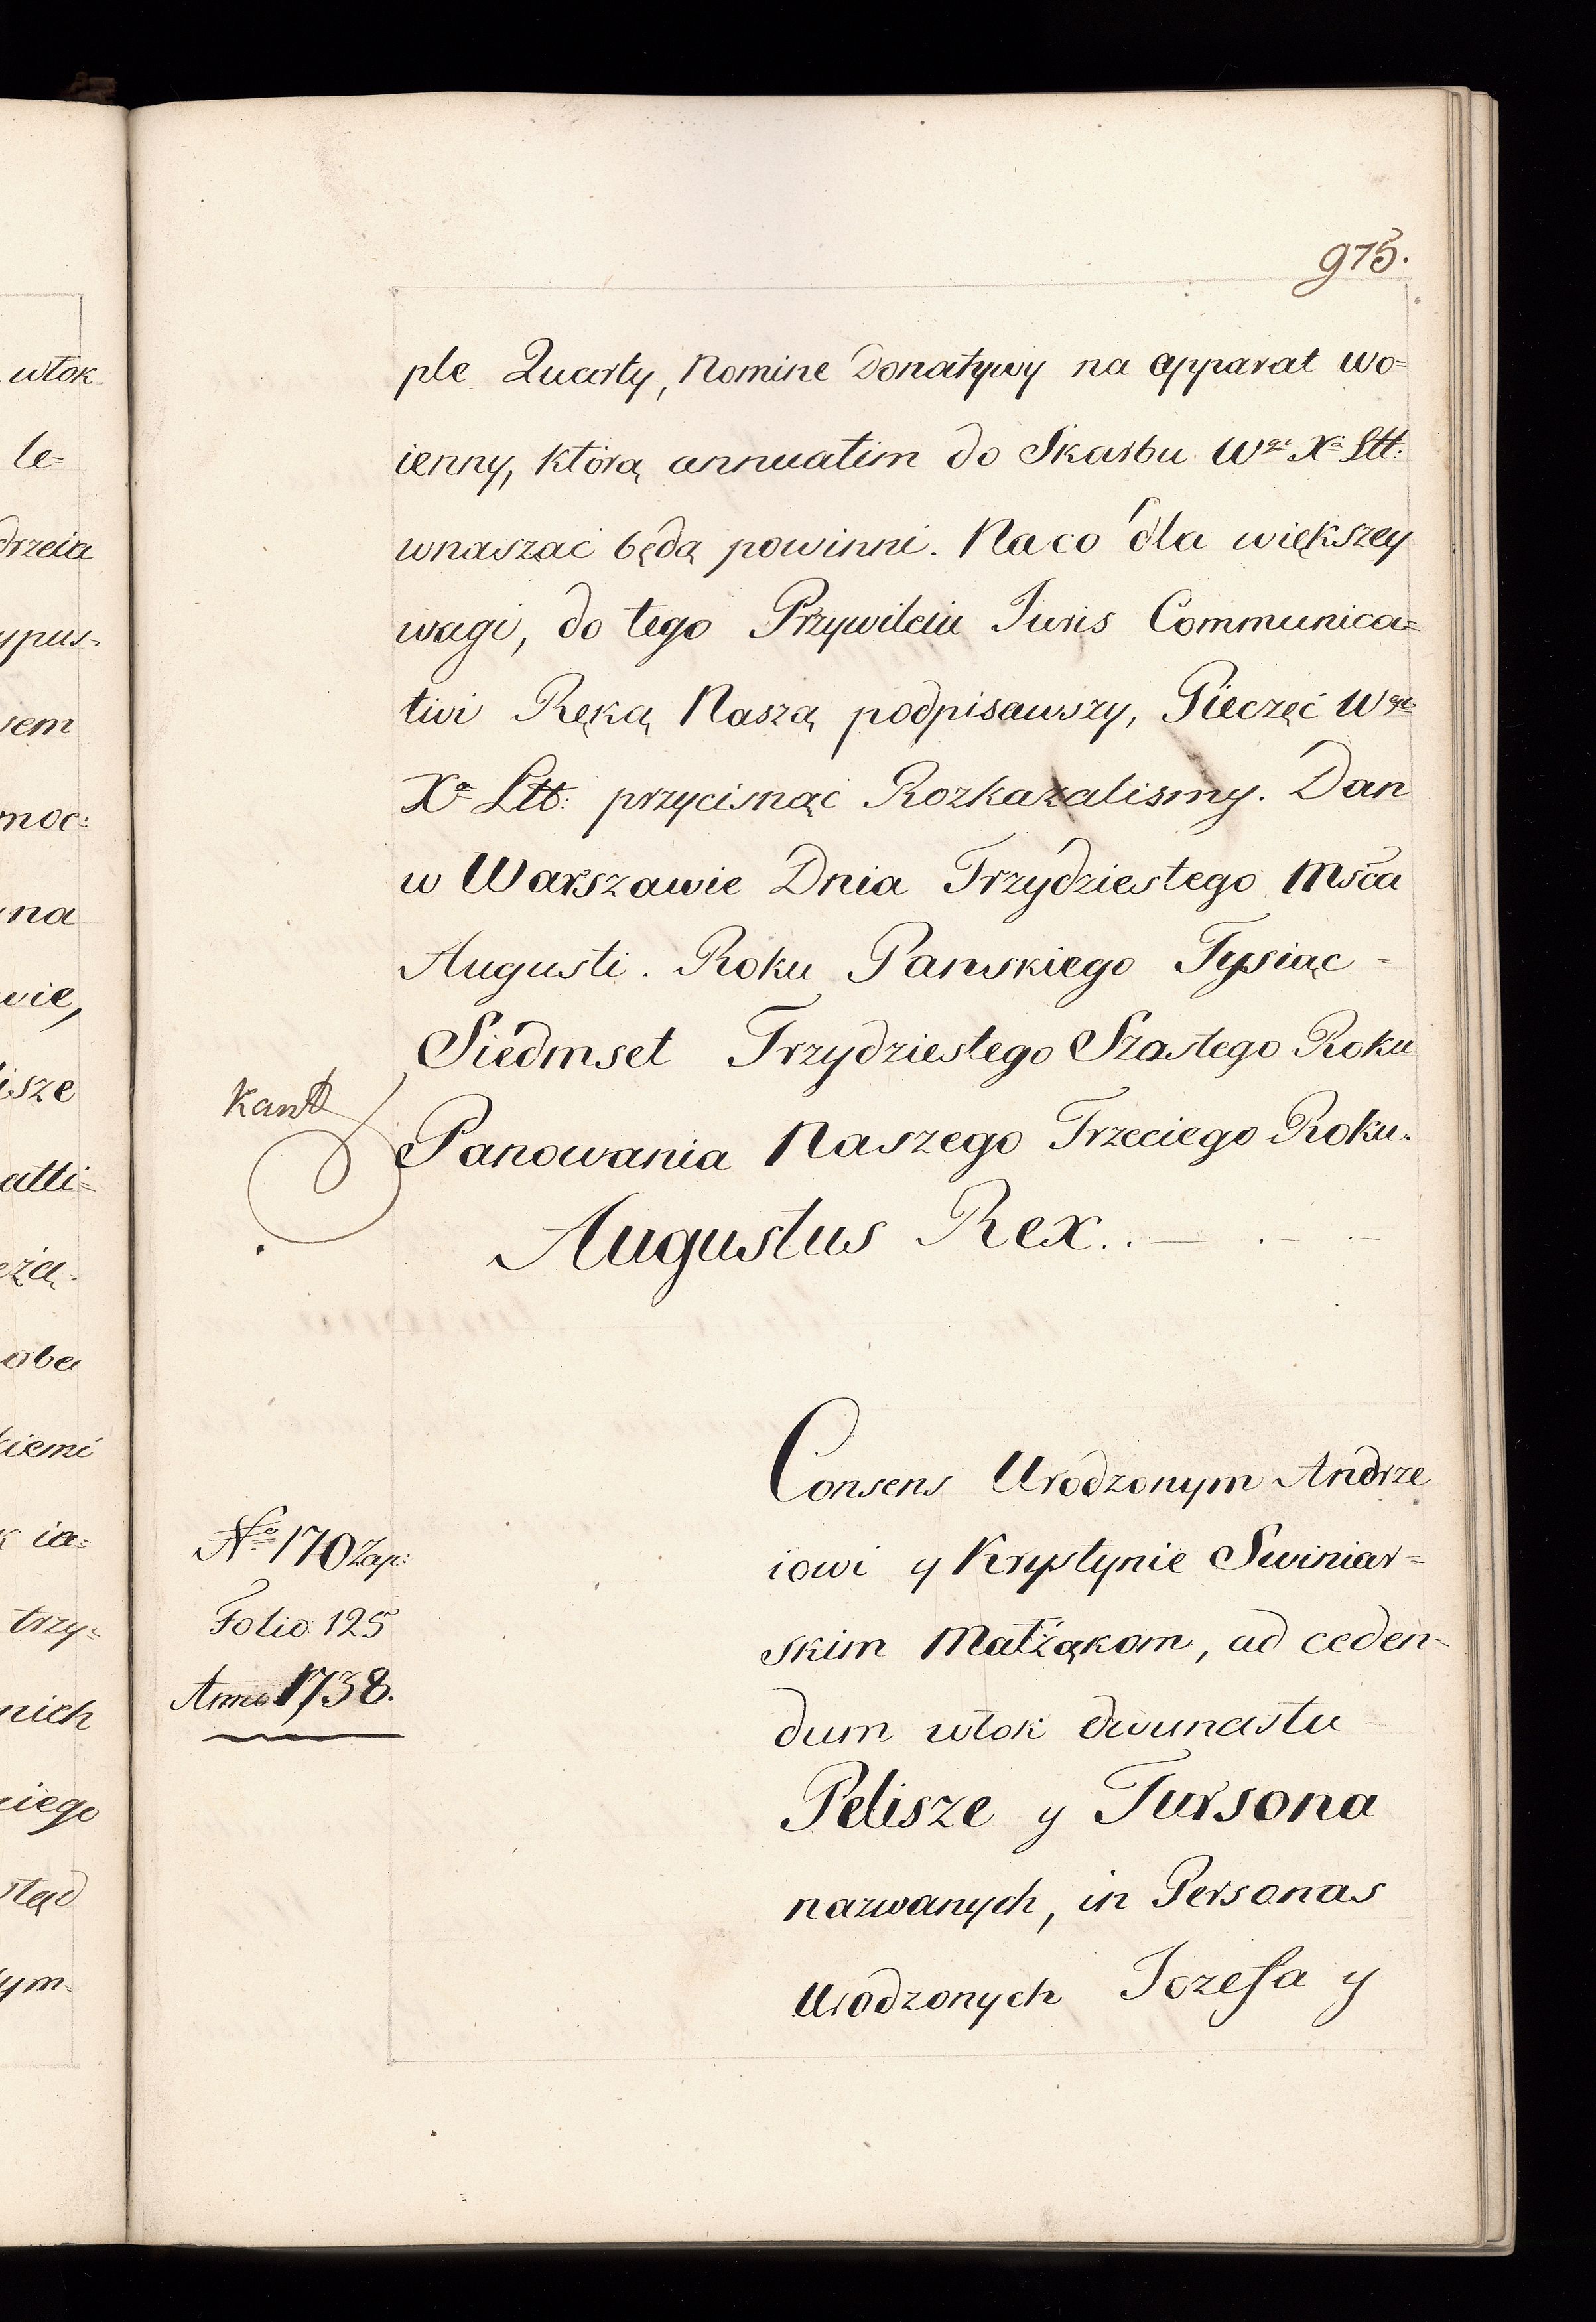 975.
ple Quarty, Nomine Donatywy na apparat wo=
ienny, którą annuatim do Skarbu Wgo Xa Litt:
wnaszać będą powinni. Na co dla większey
wagi, do tego Przywileiu Juris Communica=
tivi Ręką Naszą podpisawszy, Pieczęć Wgo
Xa Litt: przycisnąć Rozkazalismy. Dan
w Warszawie Dnia Trzydziestego Msca
Augusti. Roku Panskiego Tysiąc -
Siedmset Trzydziestego Szostego Roku
Panowania Naszego Trzeciego Roku.
Augustus Rex..
Consens Urodzonym Andrze
iowi y Krystynie Swiniar=
skim Małżąkom, ad ceden-
dum włok dwunastu
Pelisze y Tursona
nazwanych, in Personas
Urodzonych Jozefa y
No 170 Zap:
Folio 125
Anno 1738.
włok
le=
drzeia
ypus-
sem
moc:
na
wie,
isze
atti=
oba
kiemi
k ia=
trzy=
nich
niego
ym-